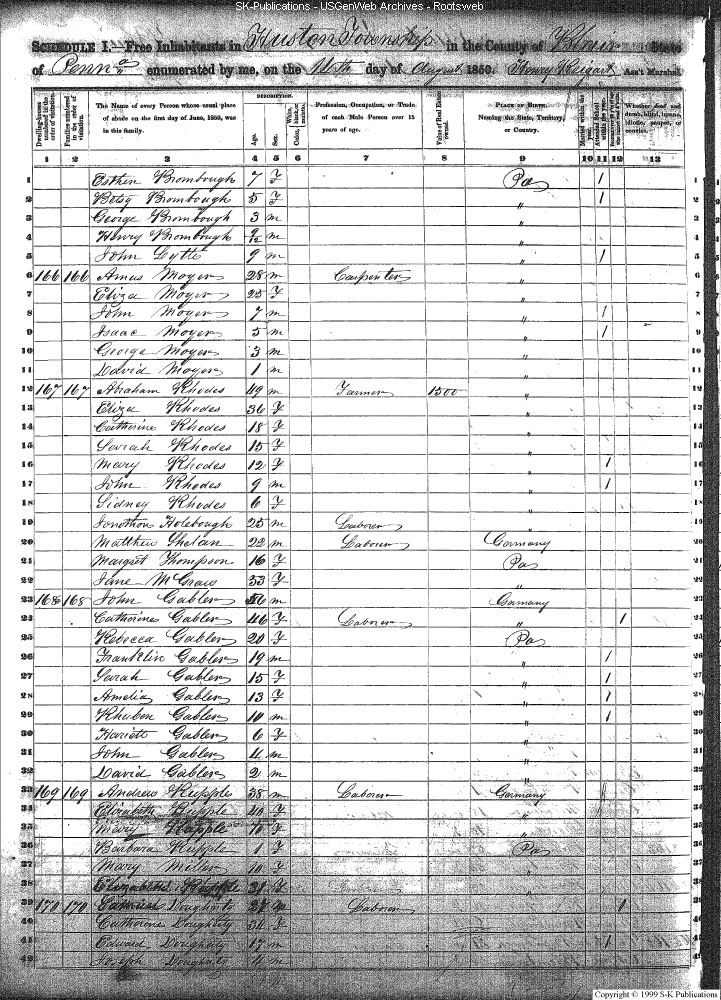 SK-Publications - USGenWeb Archives - Rootsweb
SCHEDULE I.—Free Inhabitants in Huston Township in the County of Blair State
of Penn enumerated by me, on the day of August 1850. Ass't Marshal.
Dwelling-houses numbered in the order of visitation.
Families numbered in the order of visitation.
The Name of every Person whose usual place of abode on the first day of June, 1850, was in this family.
DESCRIPTION.
Age.
Sex.
White, black, or mulatto.
Profession, Occupation, or Trade of each Male Person over 15 years of age.
Value of Real Estate owned.
PLACE OF BIRTH, Naming the State, Territory, or Country.
Married within the year.
Attended School within the year.
Whether deaf and dumb, blind, insane, idiotic, pauper, or convict.
1 2 3 4 5 6 7 8 9 10 11 12 13
1 Esther Brombough 7 F Pa / 1
2 Betsy Brombough 5 F " / 2
3 George Brombough 3 m " 3
4 Henry Brombough 9/12 m " 4
5 John Lytle 9 m " / 5
6 166 166 Amus Moyer 28 m Carpenter " 6
7 Eliza Moyer 25 F " 7
8 John Moyer 7 m " / 8
9 Isaac Moyer 5 m " / 9
10 George Moyer 3 m " 10
11 David Moyer 1 m " 11
12 167 167 Abraham Rhodes 49 m Farmer 1500 " 12
13 Eliza Rhodes 36 F " 13
14 Catharine Rhodes 18 F " 14
15 Sarah Rhodes 15 F " 15
16 Mary Rhodes 12 F " / 16
17 John Rhodes 9 m " / 17
18 Sidney Rhodes 6 F " 18
19 Holebough 25 m Laborer " 19
20 Matthew 22 m Laborer Germany 20
21 Margret Thompson 16 F Pa 21
22 Jane McGraw 33 F " 22
23 168 168 John Gabler m Germany
Catharine Gabler 46 F Laborer " /
25 Rebecca Gabler 20 F Pa
26 Franklin Gabler 19 m " /
27 Sarah Gabler 15 F " /
28 Amelia Gabler 13 F " /
29 Rhuben Gabler 10 m " /
30 Hariett Gabler 6 F "
31 John Gabler 4 m "
32 David Gabler 2 m "
169 169 Andrew Rupple 38 m Laborer Germany
Elizabeth Rupple 40 F "
Mary Rupple 10 F "
36 Barbara Rupple 1 F Pa
37 Mary Miller 10 F "
38 Elizabeth Rupple F
39 170 170 Dougherty m Laborer /
40 Catharine Dougherty 34 F
41 Edward Dougherty 17 m /
42 Joseph Dougherty 4 m
Copyright © 1999 S-K Publications